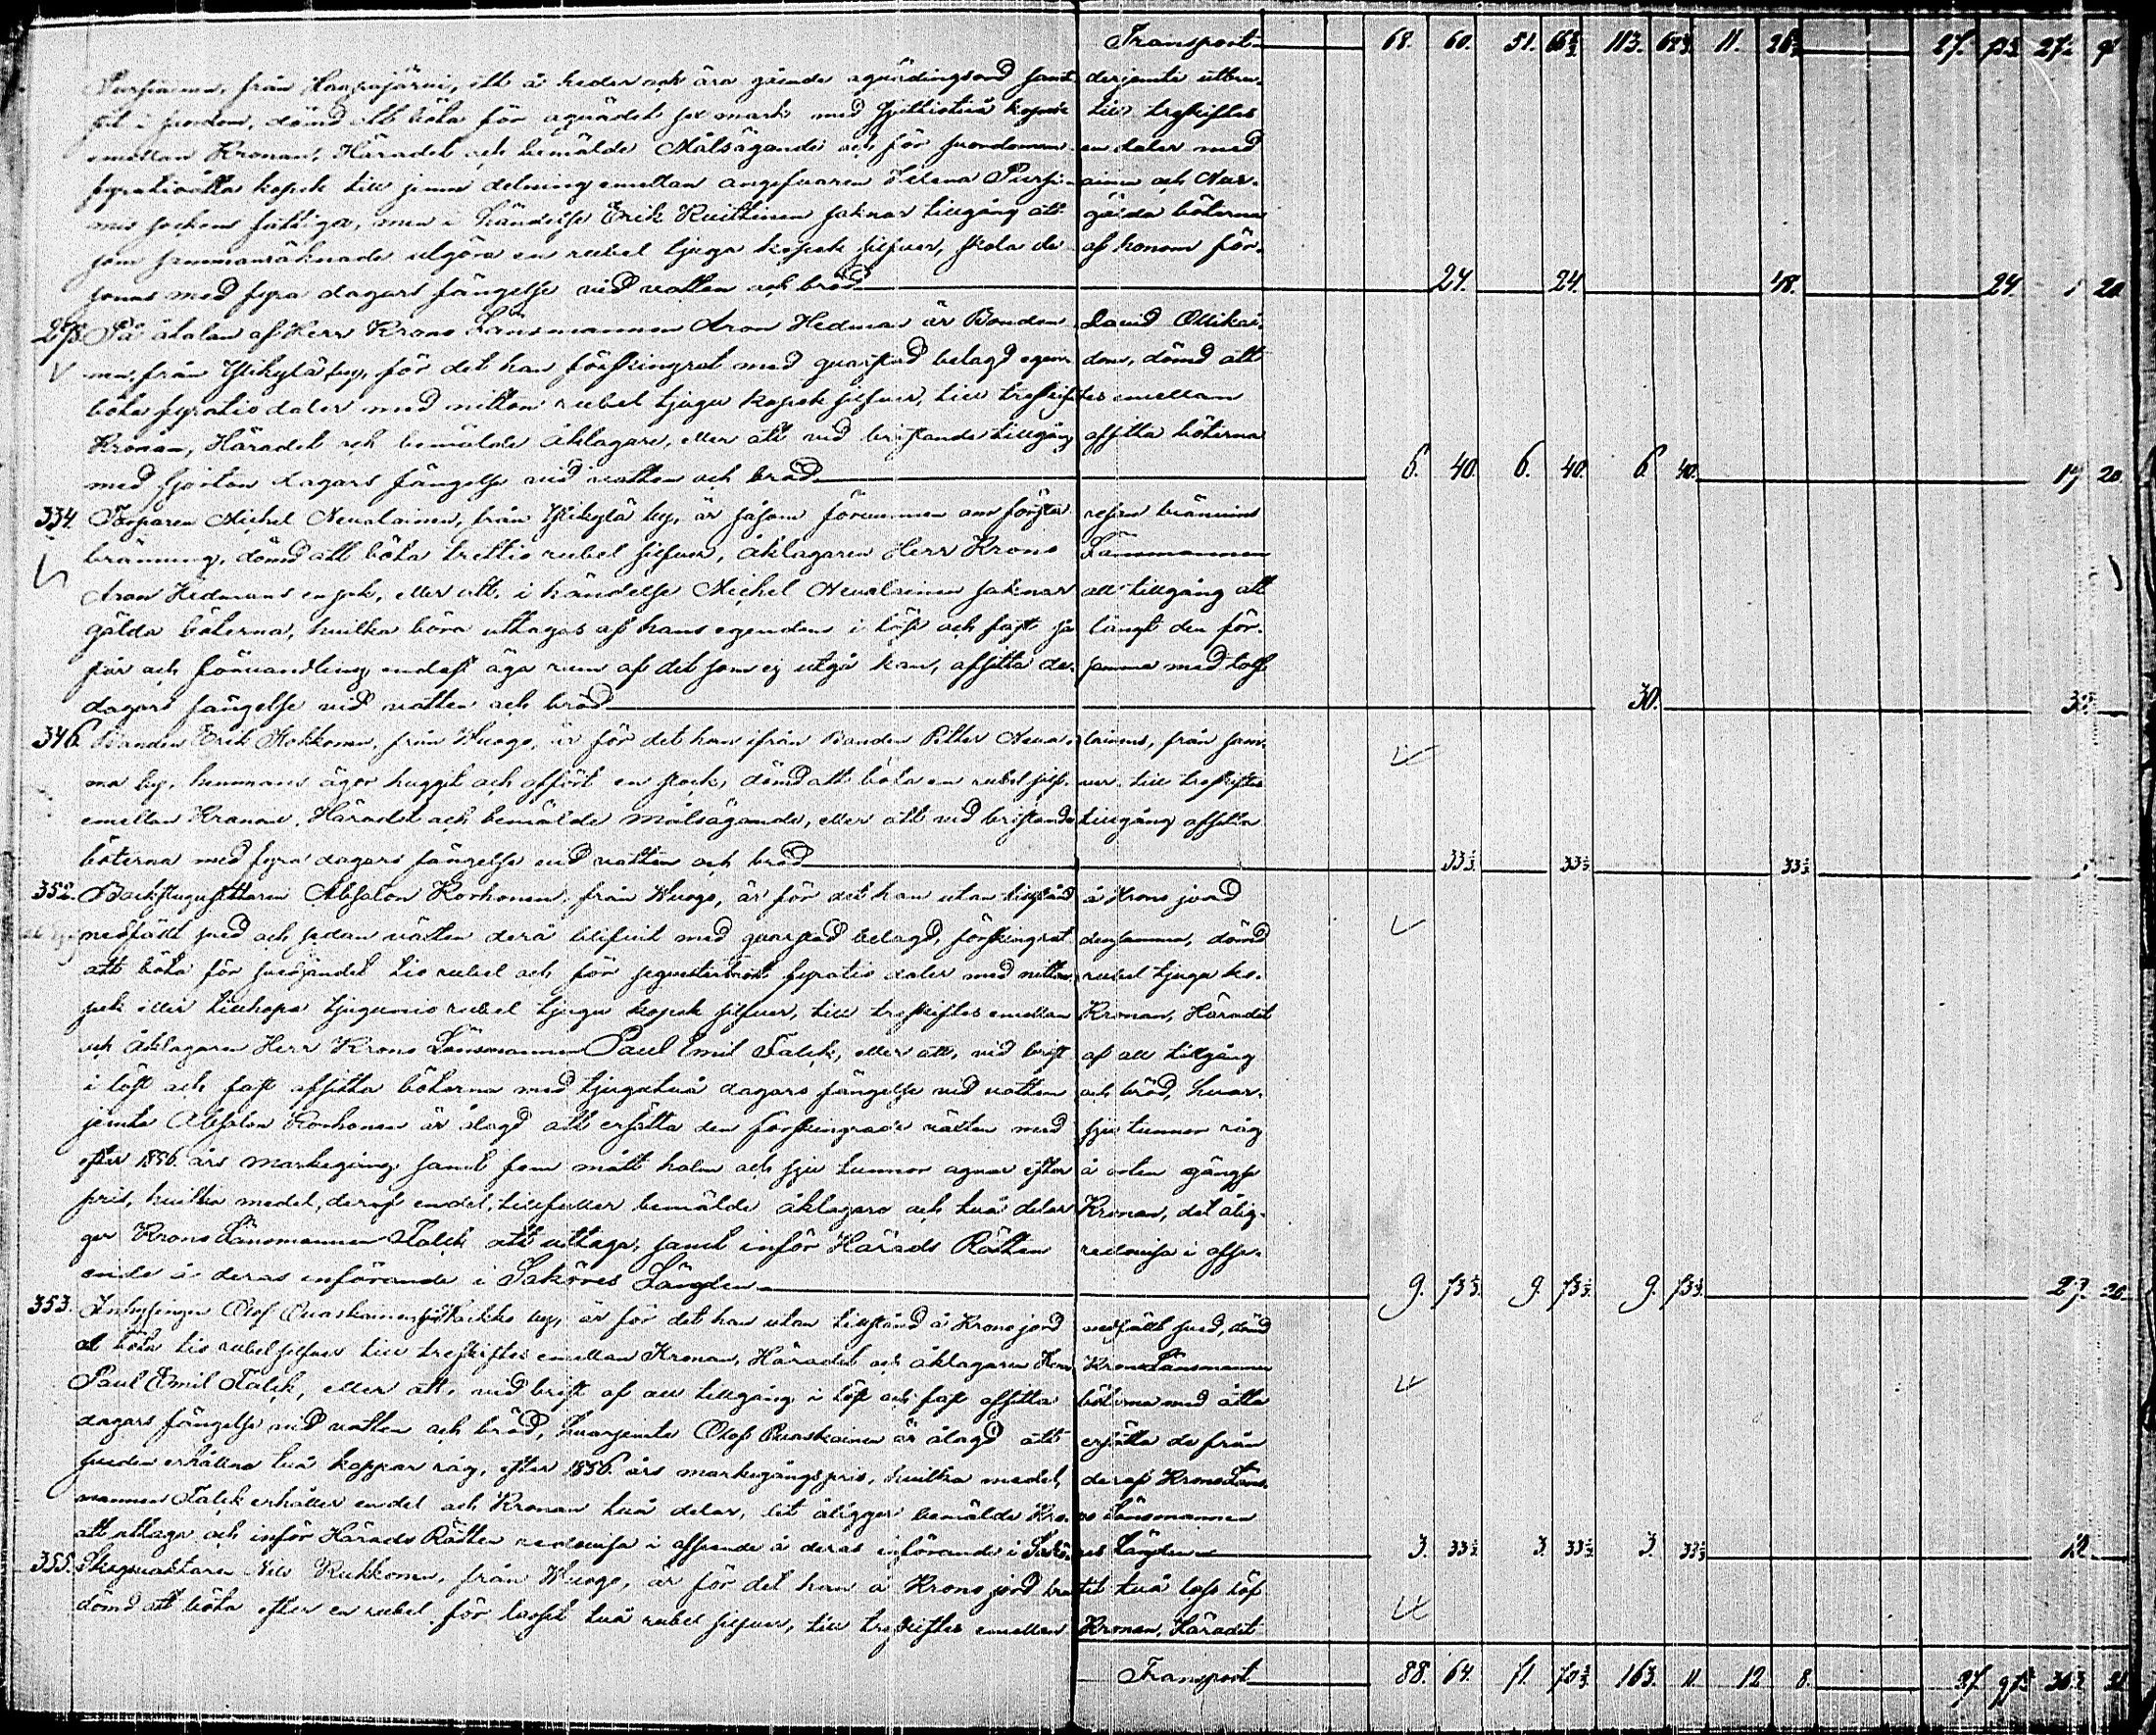 Transport 68. 60. 51. 66⅔ 113. 11. 27. 27
Pursiainen, från Haapajärvi, ett å heder och ära gående aqvädingsord samt derjemte
dömd att böta för aqvädet sex mark med kopek till treskiftes
emellan Kronan, Häradet och bemälde Målsägande och för en daler med
fyratioåtta kopek till jemn delning emellan angifvaren Helena Pursiainen och Nur-
mis sockens fattige, men i händelse Erik Ruittinen saknar tillgång att gälda böterna
som sammanräknade utgöra en rubel tjugo kopek silfver, skola de af honom för-
sonas med fyra dagars fängelse vid vatten och bröd 24. 24. 48. 24. 1 20
På åtalan af Herr Krono Länsmannen Aron Hedman är Bonden David Ollikai-
nen, från Ylikylä by, för det han förskingrat med qvarstad belagd egendom, dömd att
böta fyratio daler med nitton rubel tjugu kopek silfver, till treskiftes emellan
Kronan, Häradet och bemälde åklagare, eller att vid bristande tillgång afsitta böterna
med fjorton dagars fängelse vid vatten och bröd 6. 40. 6. 40. 6 40. 19 20
334. Torparen Michel Nevalainen, från Ylikylä by, är såsom förvunnen om första resan bränvins
bränning, dömd att böta trettio rubel silfver, åklagaren Herr Krono Länsmannen
Aron Hedmans ensak, eller att, i händelse Michel Nevalainen saknar all tillgång att
gälda böterna, hvilka böra uttagas af hans egendom i löst och fast så långt den för-
slår och förvandling endast äga rum af det som ej utgå kan, afsitta desamma med tolf
dagars fängelse vid vatten och bröd 30. 30.
346. Bonden Erik Hokkonen, från Wuogo, är för det han ifrån Bonden Petter Nevalainens, från sam-
ma by, hemmans ägor huggit och affört en stock, dömd att böta en rubel silfver till treskiftes
emellan Kronan, Häradet och bemälde målsägande, eller att vid bristande tillgång afsitta
böterna med fyra dagars fängelse vid vatten och bröd 33⅓ 33⅓ 33⅓ 1
352. Backstugusittaren Absalon Korhonen, från Wuogo, är för det han utan tillstånd å Krono jord
nedfällt sved och sedan växten derå blifvit med qvarstad belagd, förskingrat densamma, dömd
att böta för svedjandet tio rubel och för fyratio daler med nitton rubel tjugu ko-
pek eller tillhopa tjugunio rubel tjugu kopek silfver, till treskiftes emellan Kronan, Häradet
och åklagaren Herr Krono Länsmannen Paul Emil Falck, eller att, vid brist af all tillgång
i löst och fast afsitta böterna med tjugutvå dagars fängelse vid vatten och bröd, hvar-
jemte Absalon Korhonen är ålagd att ersätta den förskingrade växten med sju tunnor råg
efter 1856 års markegång samt fem mått halm och sju tunnor agnar efter å orten gängse
pris, hvilka medel, deraf en del tillfaller bemälde åklagare och två delar Kronan, det ålig-
ger Krono Länsmannen Falck att uttaga, samt inför Härads Rätten redovisa i afse-
ende å deras införande i Saköres Längden 9. 73⅓ 9. 73⅓ 9. 73⅓ 29. 20
353. Inhysingen Olof Qvaskainen från by, är för det han utan tillstånd å Krono jord nedfällt sved, dömd
att böta tio rubel silfver till treskiftes emellan Kronan, Häradet och åklagaren Herr Krono Länsmannen
Paul Emil Falck, eller att, vid brist af all tillgång i löst och fast afsitta böterna med åtta
dagars fängelse vid vatten och bröd, hvarjemte Olof Qvaskainen är ålagd att ersätta de från
sveden erhållna två kappar råg, efter 1856 års markegångspris, hvilka medel, deraf Krono Läns-
mannen Falck erhåller en del och Kronan två delar, det åligger bemälde Krono Länsmannen
att uttaga och inför Härads Rätten redovisa i afseende å deras införande i Saköres Längden 3. 33⅓ 3. 33⅓ 3. 33⅓ 10.
355. Skogvaktaren Nils Rukkonen, från Wuogo, är för det han å Krono jord brutit två lass löf
dömd att böta efter en rubel för lasset två rubel silfver, till treskiftes emellan Kronan, Häradet
Transport 88. 64. 71. 70⅔ 163. 11. 12 8. 27 363